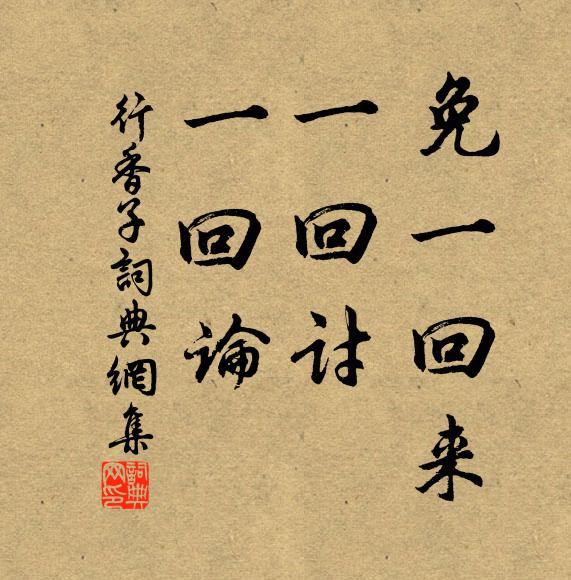 免一回来
一回討
一回論
行香子詞典網集
詞典
网印